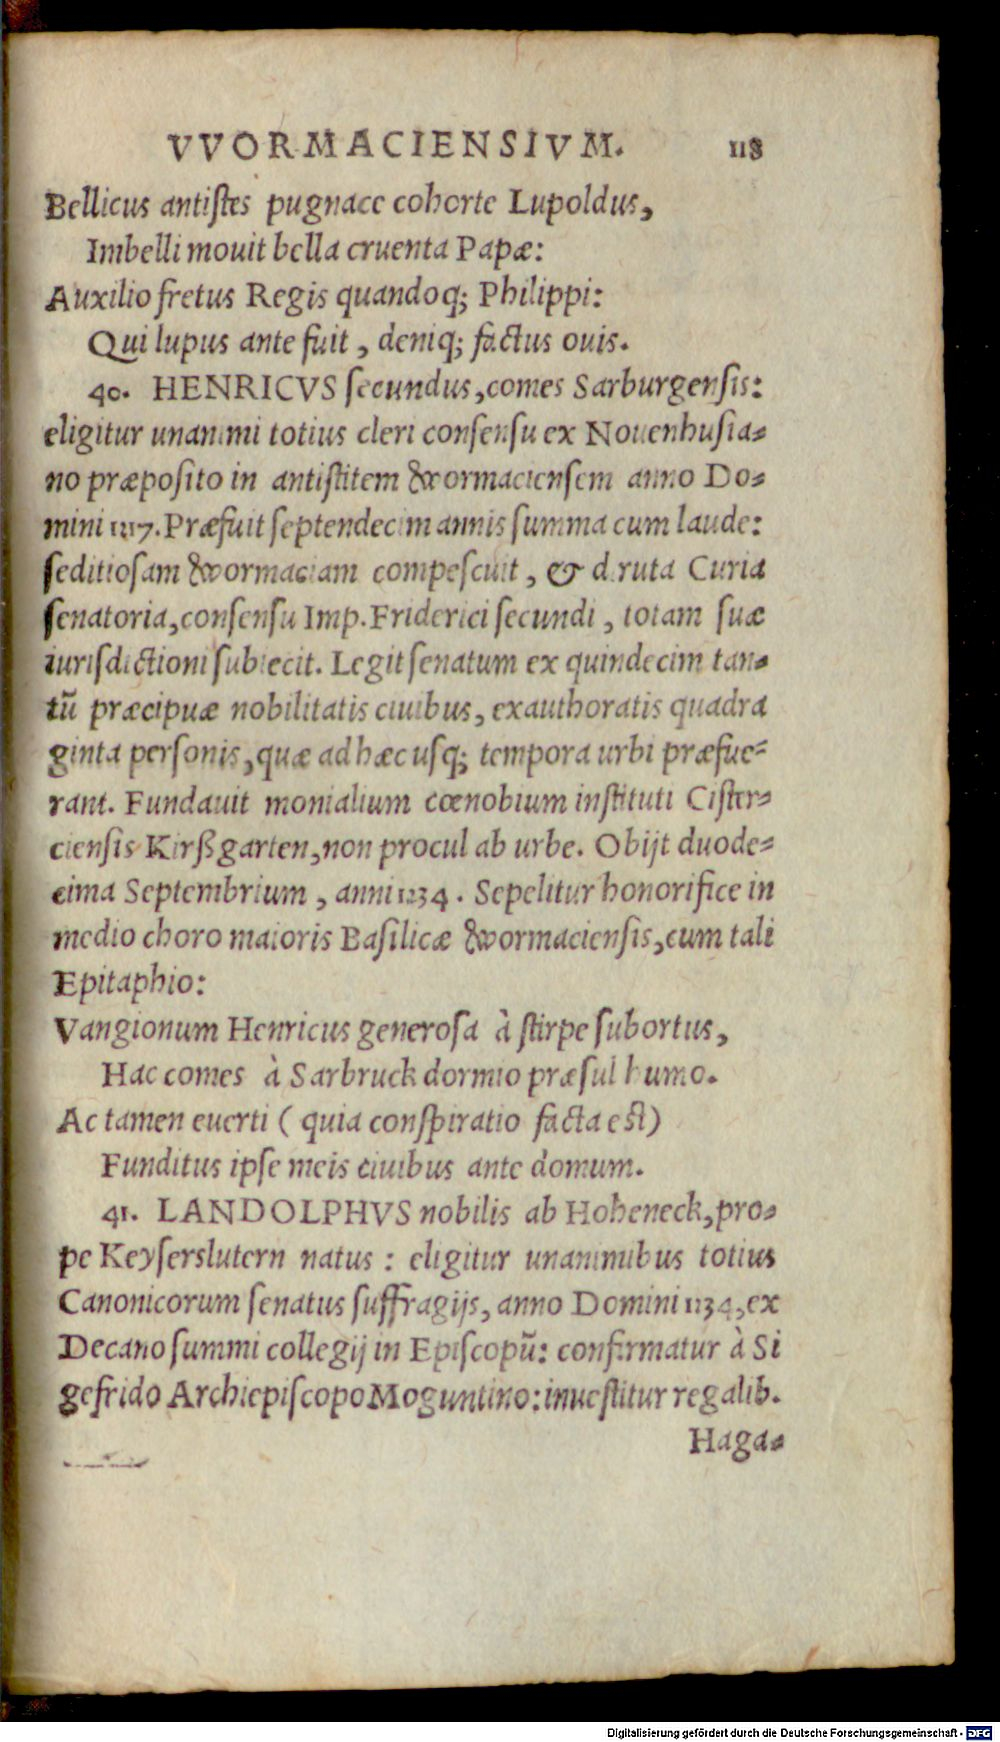 VVORMACIENSIVM. 118
Bellicus antiſtes pugnace cohorte Lupoldus,
Imbelli mouit bella cruenta Papæ:
Auxilio fretus Regis quandoq; Philippi:
Qui lupus ante fuit, deniq; factus ouis.
40. HENRICVS ſecundus, comes Sarburgenſis:
eligitur unanimi totius cleri conſenſu ex Nouenhuſia-
no præpoſito in antiſtitem Wormacienſem anno Do-
mini 1217. Præfuit ſeptendecim annis ſumma cum laude:
ſeditioſam Wormaciam compeſcuit, & diruta Curia
ſenatoria, conſenſu Imp. Friderici ſecundi, totam ſuæ
iuriſdictioni ſubiecit. Legit ſenatum ex quindecim tan-
tũ præcipuæ nobilitatis ciuibus, exauthoratis quadra
ginta perſonis, quæ ad hæc uſq; tempora urbi præfue-
rant. Fundauit monialium cœnobium inſtituti Ciſter-
cienſis Kirßgarten, non procul ab urbe. Obijt duode-
cima Septembrium, anni 1234. Sepelitur honorifice in
medio choro maioris Baſilicæ Wormacienſis, cum tali
Epitaphio:
Vangionum Henricus generoſa à ſtirpe ſubortus,
Hac comes à Sarbruck dormio præſul humo.
Ac tamen euerti (quia conſpiratio facta eſt)
Funditus ipſe meis ciuibus ante domum.
41. LANDOLPHVS nobilis ab Hoheneck, pro-
pe Keyſerslutern natus: eligitur unanimibus totius
Canonicorum ſenatus ſuffragijs, anno Domini 1234, ex
Decano ſummi collegij in Epiſcopũ: confirmatur à Si
gefrido Archiepiſcopo Moguntino: inueſtitur regalib.
Haga-
Digitalisierung gefördert durch die Deutsche Forschungsgemeinschaft - DFG